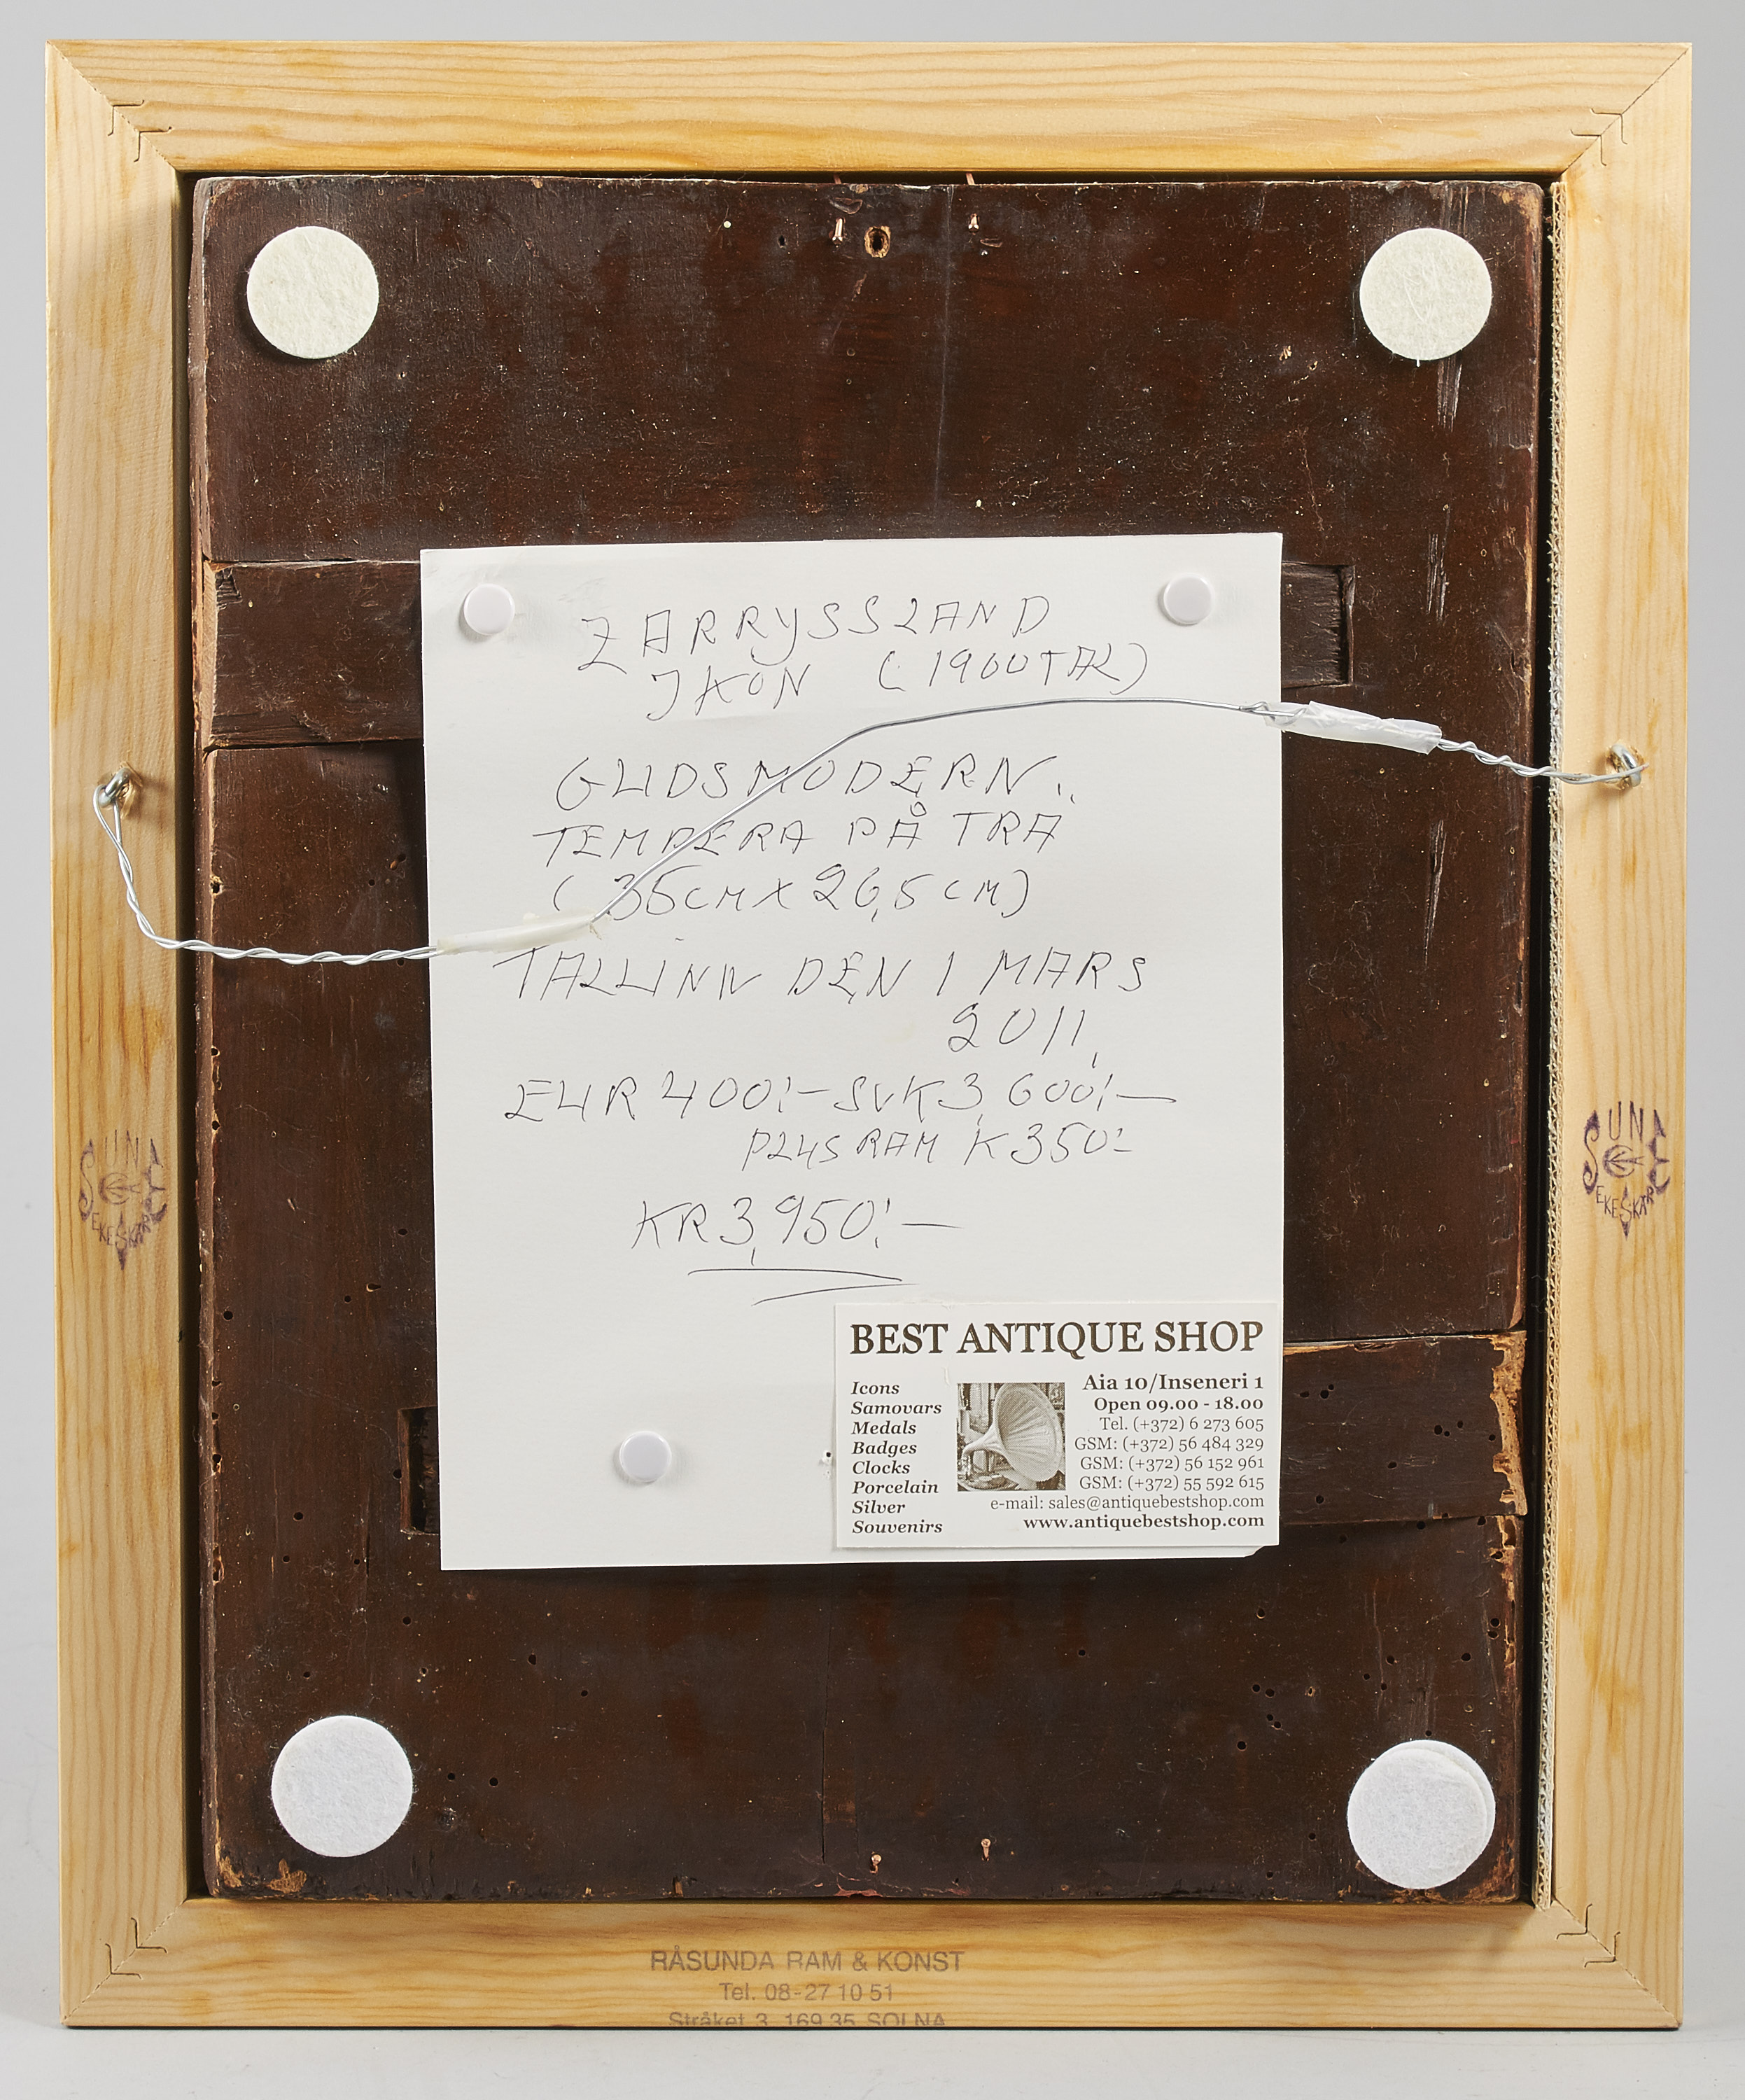 ZARRYSSLAND
IKON (1900TAL)
GUDSMODERN.
TEMPERA PÅ TRÄ
(35CM X 26,5CM)
TALLINN DEN 1 MARS
2011,
EUR 400:- SVK 3,600:-
PLUS RAM K350:-
KR 3,950:-
BEST ANTIQUE SHOP
Icons
Samovars
Medals
Badges
Clocks
Porcelain
Silver
Souvenirs
Aia 10/Inseneri 1
Open 09.00 - 18.00
Tel. (+372) 6 273 605
GSM: (+372) 56 484 329
GSM: (+372) 56 152 961
GSM: (+372) 55 592 615
e-mail: sales@antiquebestshop.com
www.antiquebestshop.com
RÅSUNDA RAM & KONST
Tel. 08-27 10 51
Stråket 3, 169 35 SOLNA